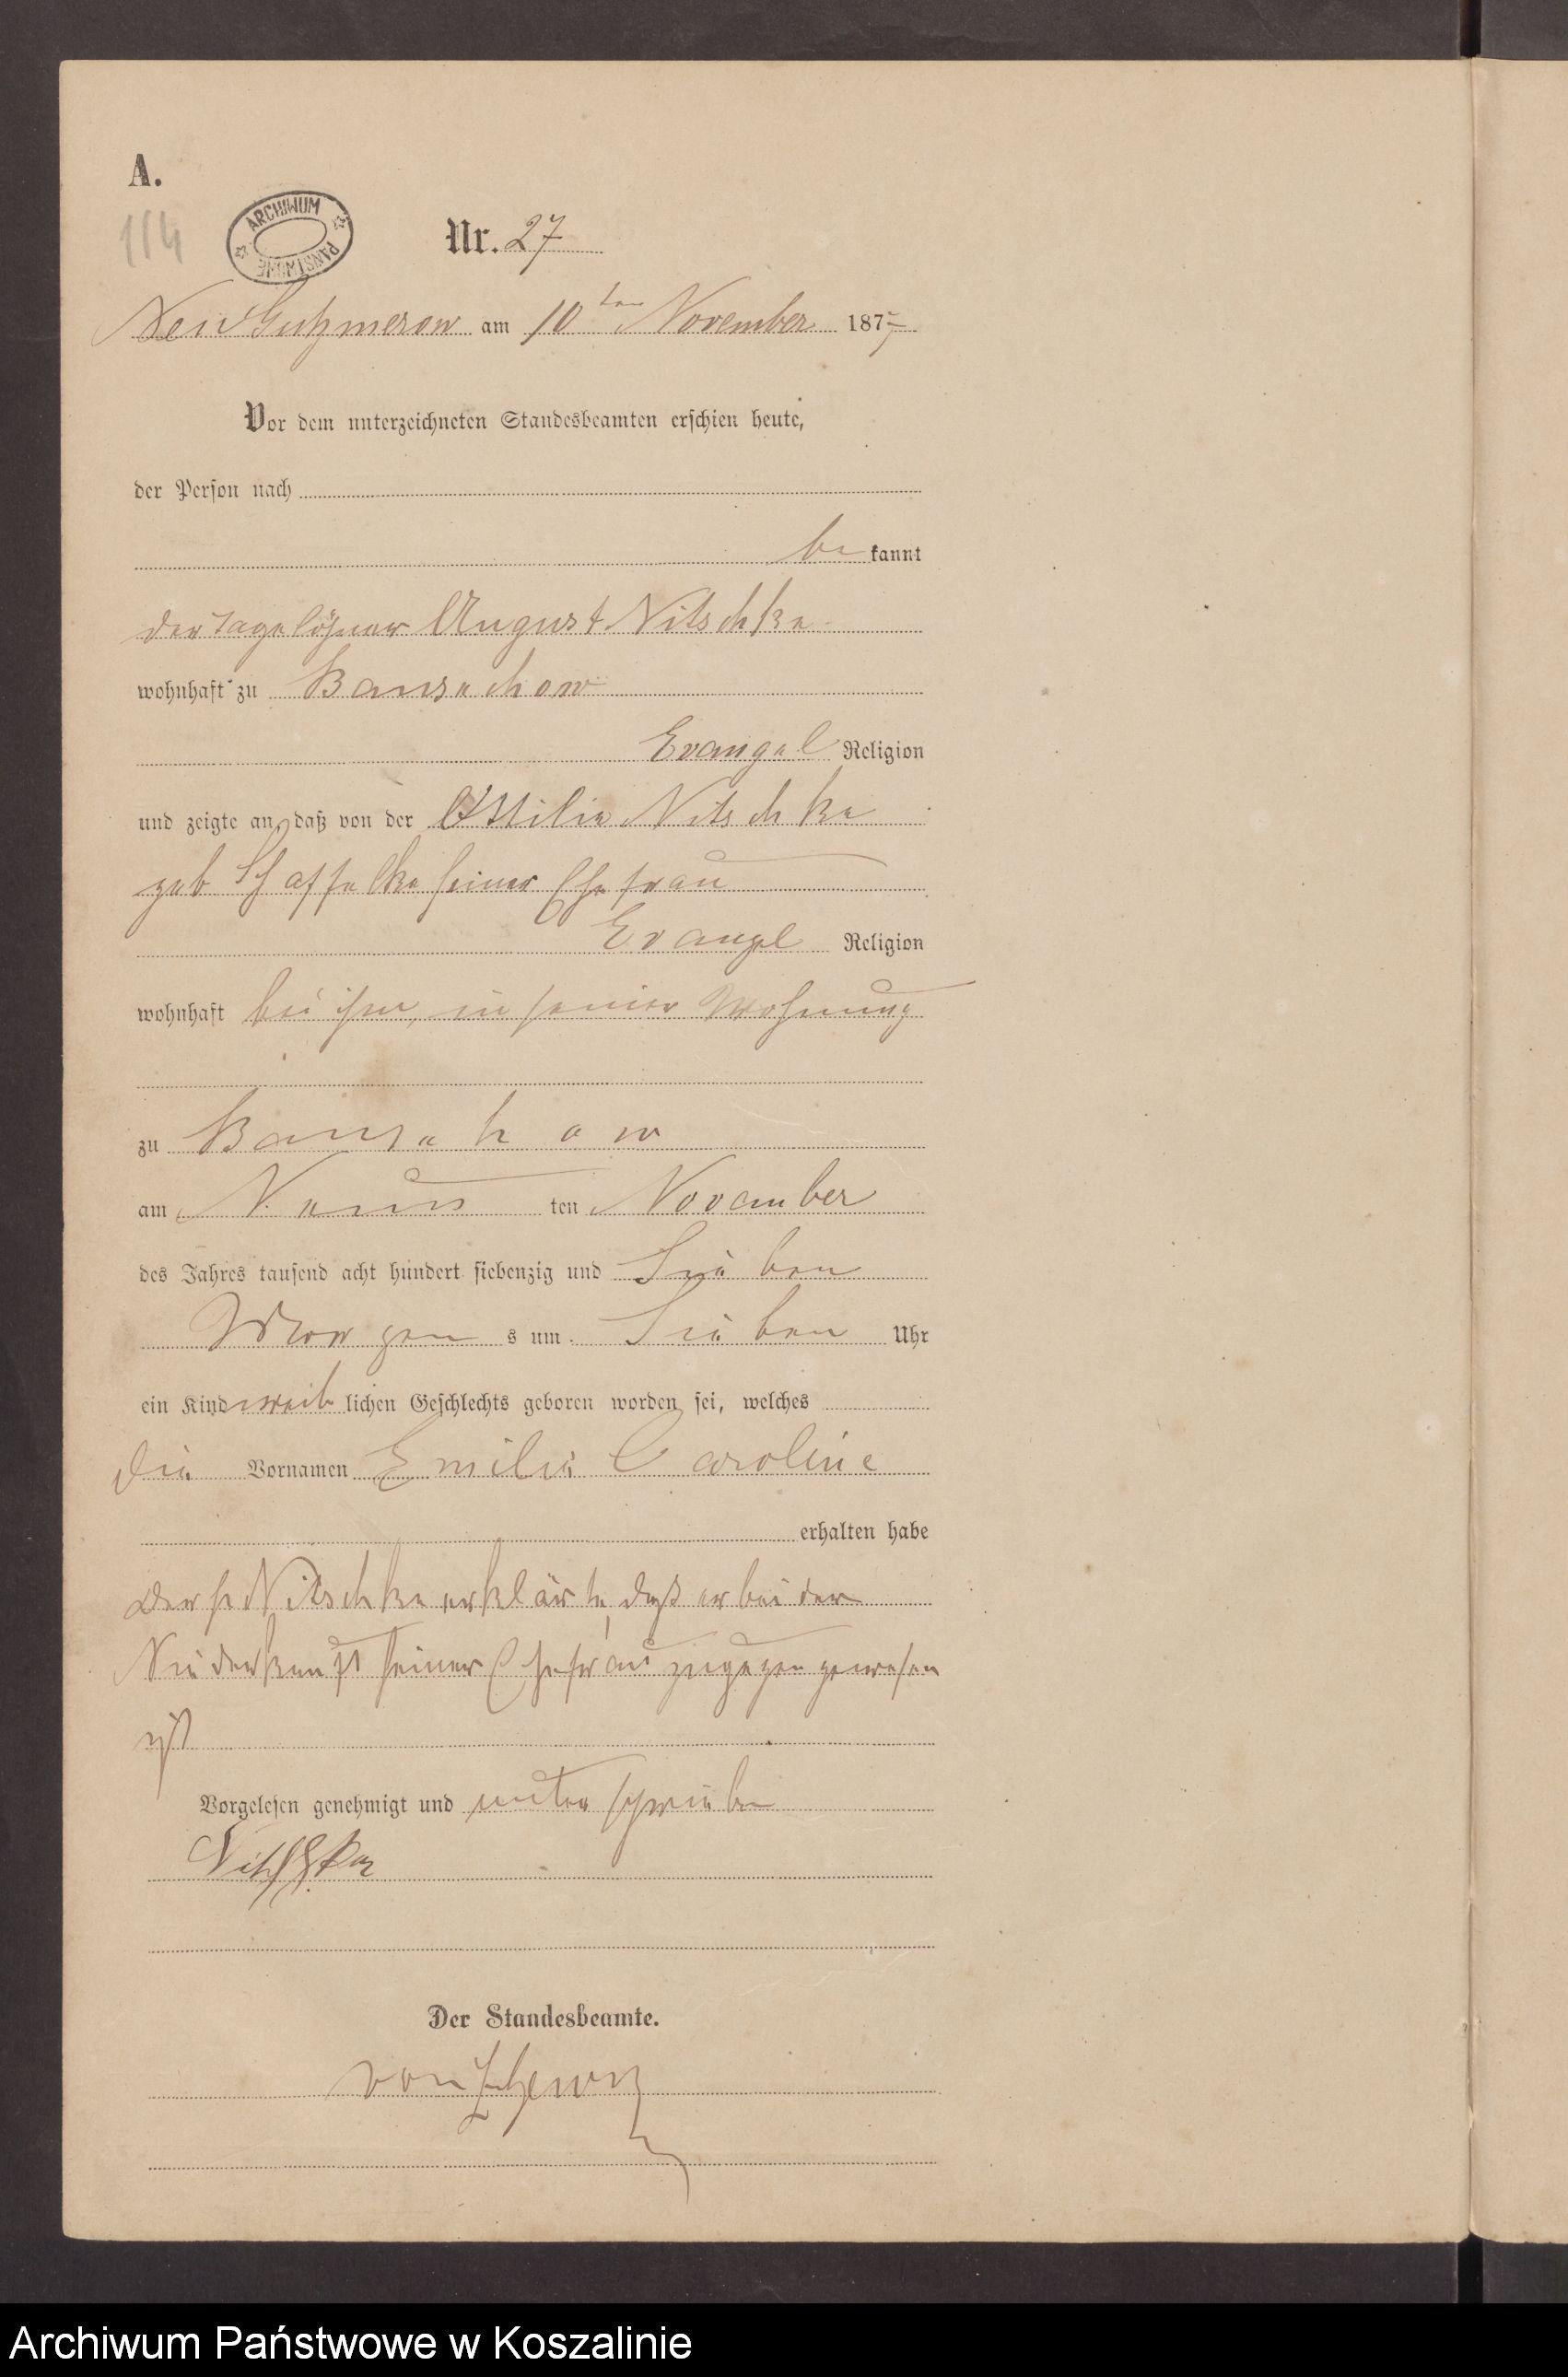 A.
114
ARCHIWUM PAŃSTWOWE
Nr. 27
Neu Gutzmerow am 10ten November 1877
Vor dem unterzeichneten Standesbeamten erschien heute,
der Person nach
be kannt
der Tagelöhner August Nitschke
wohnhaft zu Bansechow
Evangel Religion
und zeigte an, daß von der Ottilie Nitschke
geb seiner Ehefrau
Evangel Religion
wohnhaft bei ihm, in seiner Wohnung
zu Bansehow
am Neun ten November
des Jahres tausend acht hundert siebenzig und Sieben
Morgen s um Sieben Uhr
ein Kind weib lichen Geschlechts geboren worden sei, welches
die Vornamen Emilie Caroline
erhalten habe
Der Nitschke erklärte, daß er bei der
Niederkunft seiner Ehefrau zugegen gewesen
ist
Vorgelesen genehmigt und unterschrieben
Nitschke
Der Standesbeamte.
von
Archiwum Państwowe w Koszalinie